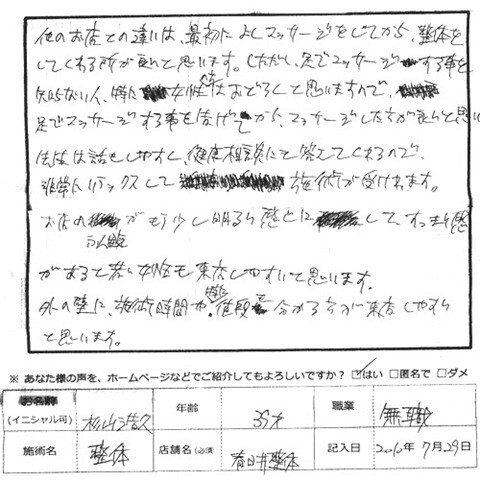 他のお店との違いは、最初に足でマッサージをしてから、整体を
してくれる所が良いと思います。ただし、足でマッサージする事を
知らない人、特に女性はおどろくと思いますので、
足でマッサージする事を告げてから、マッサージした方が良いと思い
先生は話もしやすく、健康相談にも答えてくれるので、
非常にリラックスして施術が受けれます。
お店の外観がもう少し明るい感じにして、すっきり感
があると若い女性も来店しやすいと思います。
外の壁に、施術時間や、特に値段も分かる方が来店しやすい
と思います。
※ あなた様の声を、ホームページなどでご紹介してもよろしいですか? ☑はい □匿名で □ダメ
お名前(イニシャル可) 杉山浩久 年齢 39才 職業 無職
施術名 整体 店舗名(必須) 春日井整体 記入日 2016年7月29日